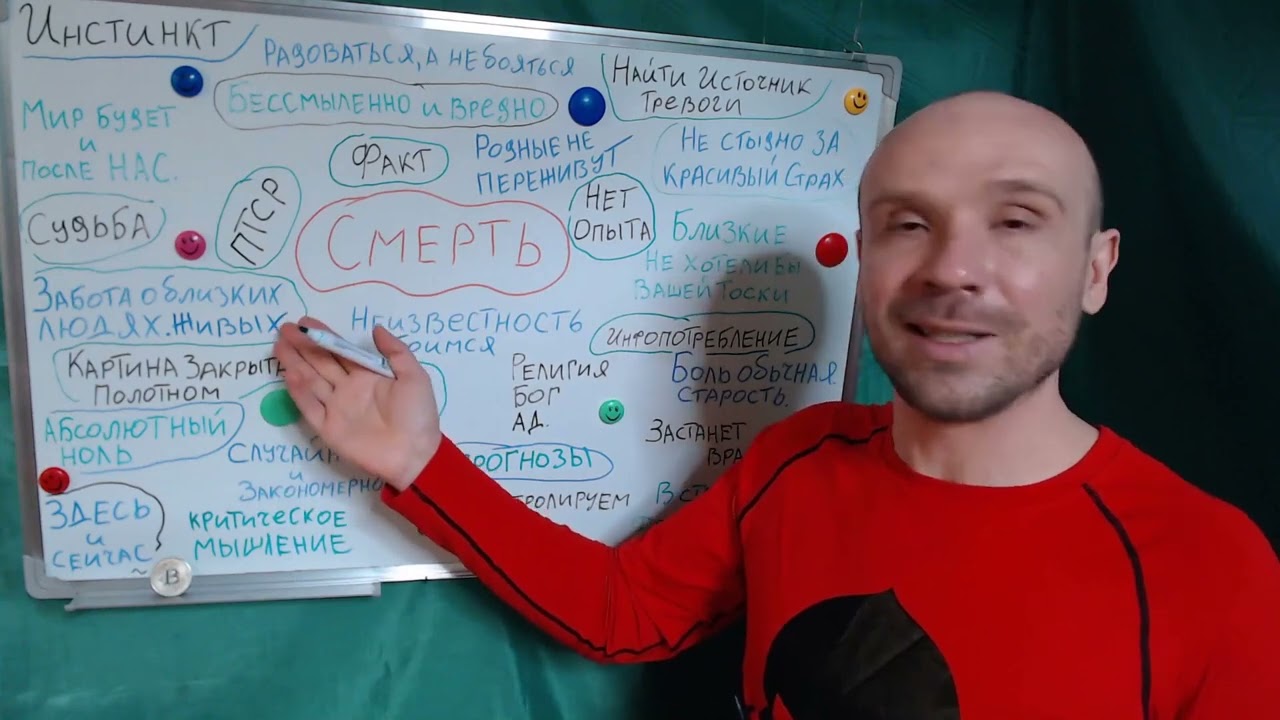 ИНСТИНКТ
РАДОВАТЬСЯ, А НЕ БОЯТЬСЯ
БЕССМЫЛЕННО И ВРЕДНО
НАЙТИ ИСТОЧНИК
ТРЕВОГИ
МИР БУДЕТ
И
ПОСЛЕ НАС.
ФАКТ
РОДНЫЕ НЕ
ПЕРЕЖИВУТ
НЕ СТЫДНО ЗА
КРАСИВЫЙ СТРАХ
СУДЬБА
ПТСР
СМЕРТЬ
НЕТ
ОПЫТА
БЛИЗКИЕ
НЕ ХОТЕЛИ БЫ
ВАШЕЙ ТОСКИ
ЗАБОТА О БЛИЗКИХ
ЛЮДЯХ. ЖИВЫХ
НЕИЗВЕСТНОСТЬ
ИНФОПОТРЕБЛЕНИЕ
КАРТИНА ЗАКРЫТА
ПОЛОТНОМ
РЕЛИГИЯ
БОГ
АД.
БОЛЬ ОБЫЧНАЯ.
СТАРОСТЬ.
АБСОЛЮТНЫЙ
НОЛЬ
ЗАСТАНЕТ
И
ЗАКОНОМЕРНО
ЗДЕСЬ
И
СЕЙЧАС
КРИТИЧЕСКОЕ
МЫШЛЕНИЕ
B